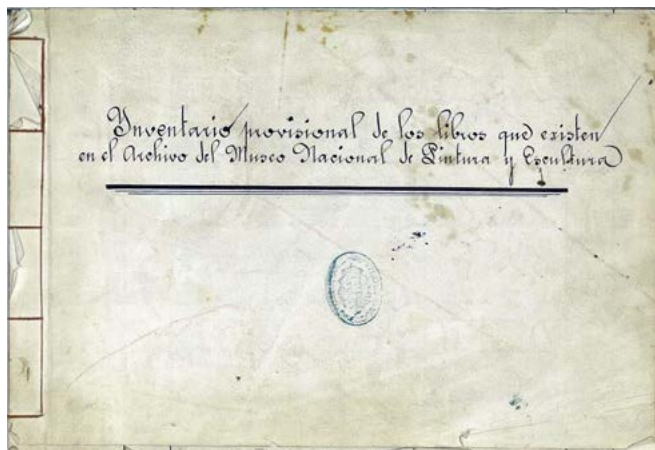 Inventario provisional de los libros que existen
en el Archivo del Museo Nacional de Pintura y Escultura